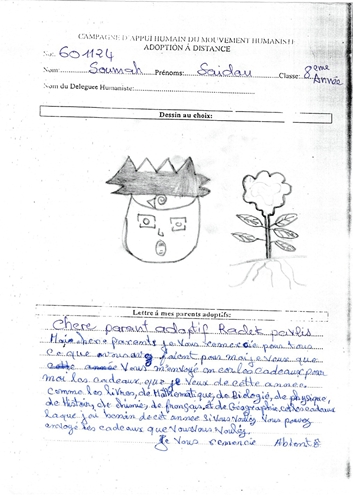 CAMPAGNE D'APPUI HUMAIN DU MOUVEMENT HUMANISTE
ADOPTION À DISTANCE
No: 601124
Nom: Soumah Prénoms: Saidou Classe: 8eme Année
Nom du Deleguee Humaniste:
Dessin au choix:
Lettre á mes parents adoptifs:
Chere parent adoptif Radek
chere parents je Vous remercie pour tous
ce que faiont pour moi je Veux que
cette année Vous cadeaux pour
moi les cadeaux que je Veux de cette annee
comme les livres, de Mathématique, de Biologie, de physique,
de Histoire, de chimie, de français, et de Géographie, cadeaux
la que j'ai besoin de cet annee Si Vous Voulez Vous pouvez
envoyé les cadeaux que Vous Vous Voulez.
Je Vous remencie